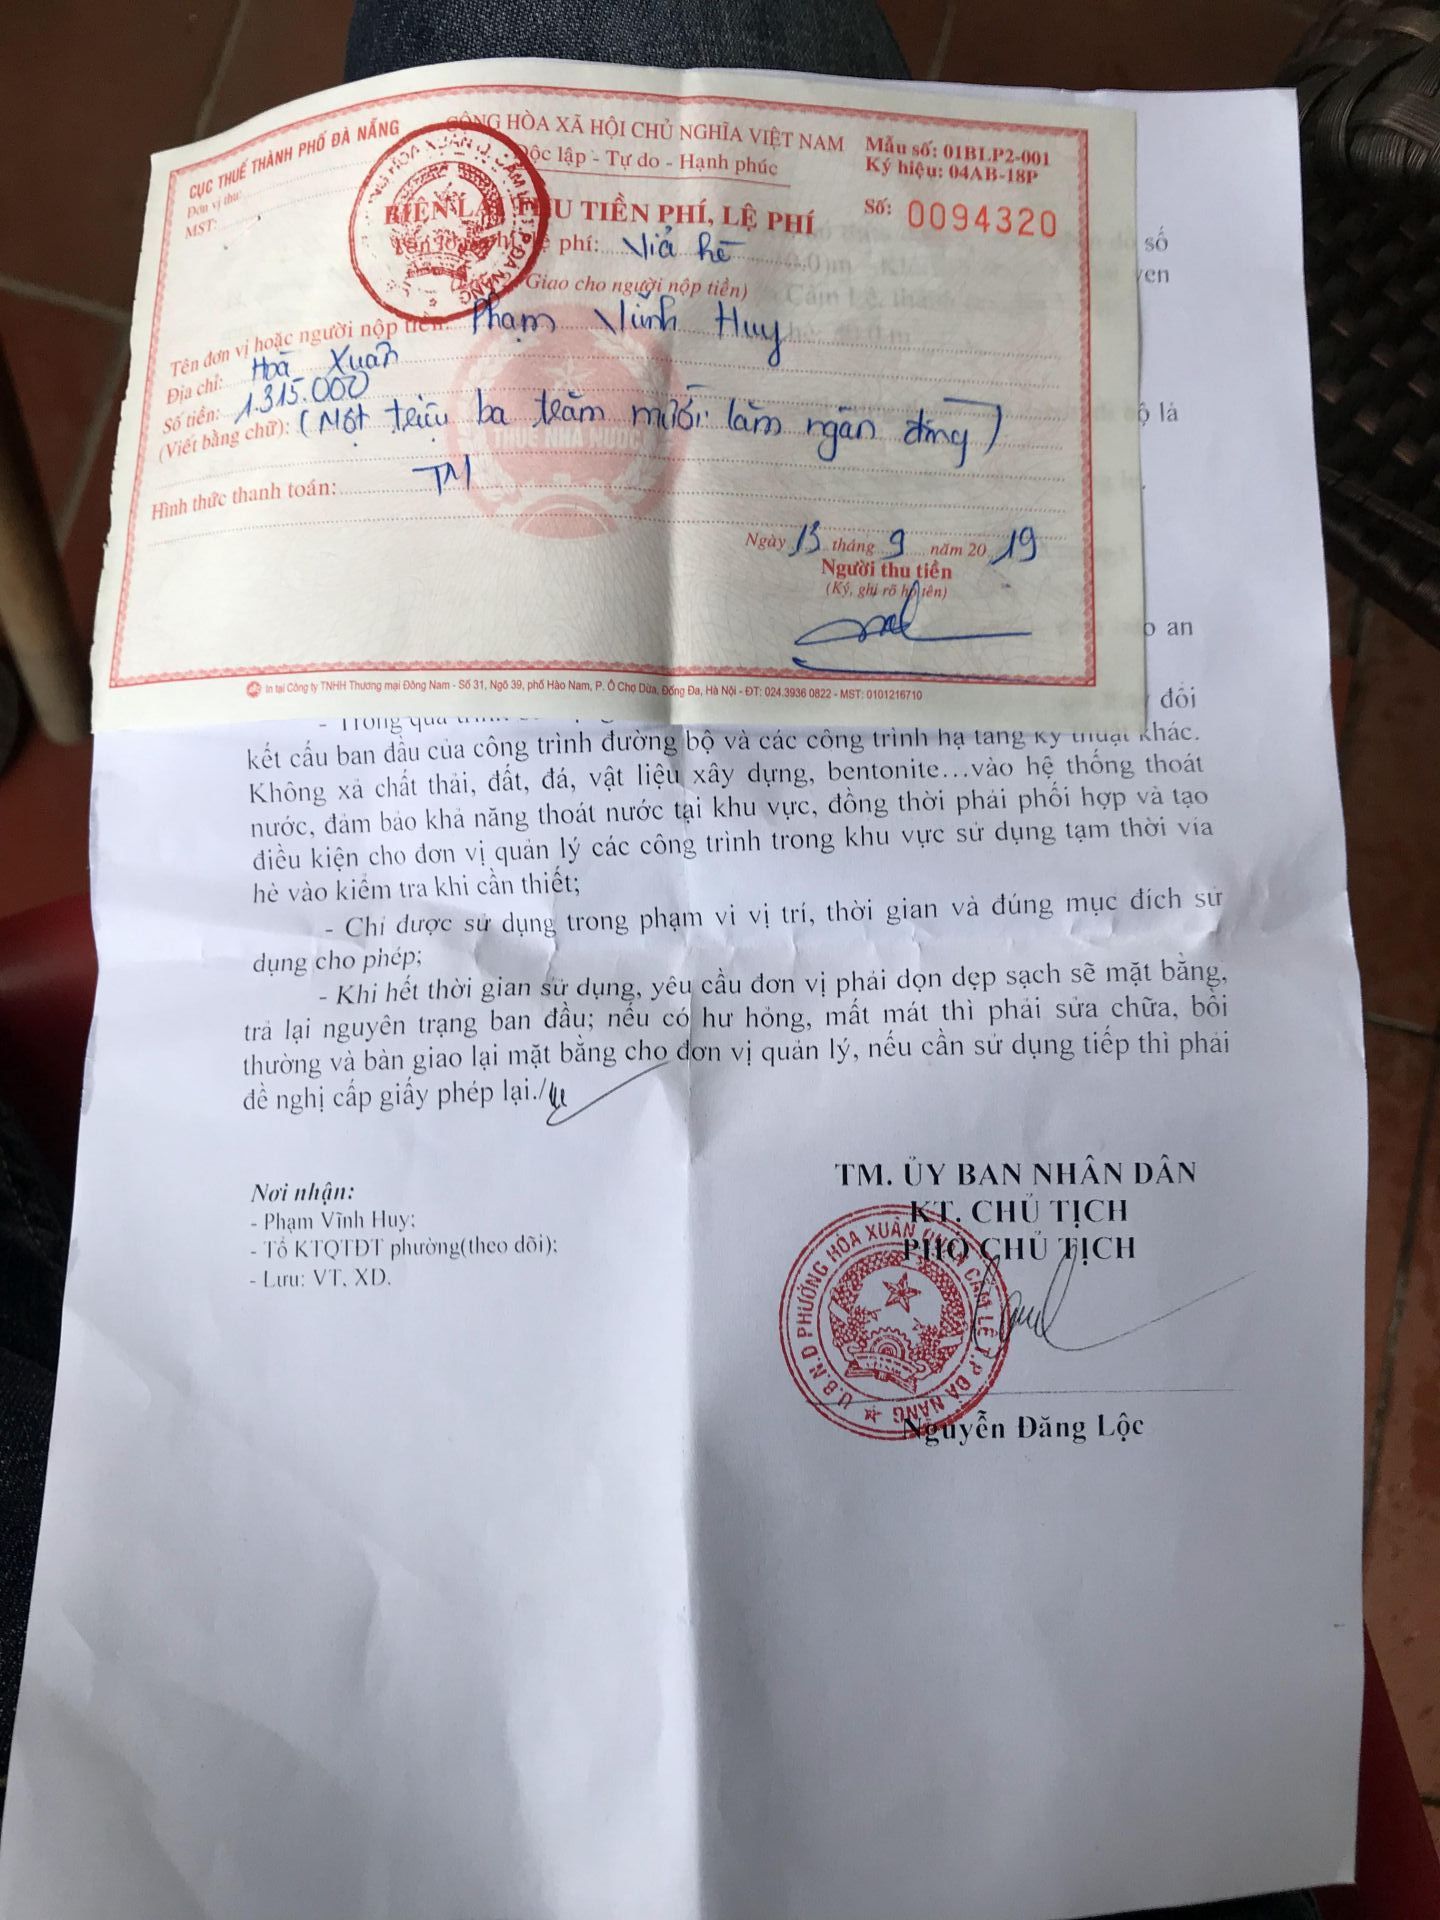 CỤC THUẾ THÀNH PHỐ ĐÀ NẴNG
CỘNG HÒA XÃ HỘI CHỦ NGHĨA VIỆT NAM
Mẫu số: 01BLP2-001
Đơn vị thu:
Độc lập - Tự do - Hạnh phúc
Ký hiệu: 04AB-18P
MST:
BIÊN LAI THU TIỀN PHÍ, LỆ PHÍ
Số: 0094320
lệ phí: Vỉả hè
Giao cho người nộp tiền)
Tên đơn vị hoặc người nộp tiền: Phạm Vĩnh Huy
Địa chỉ: Hoà Xuân
Số tiền: 1.315.000
(Viết bằng chữ): (Một triệu ba trăm mười lăm ngàn đồng)
THUẾ NHÀ NƯỚC
Hình thức thanh toán: TM
Ngày 13 tháng 9 năm 2019
Người thu tiền
(Ký, ghi rõ họ tên)
In tại Công ty TNHH Thương mại Đông Nam - Số 31, Ngõ 39, phố Hào Nam, P. Ô Chợ Dừa, Đống Đa, Hà Nội - ĐT: 024.3936 0822 - MST: 0101216710
số
yen
lả
an
- Trong quá trình đổi
kết cấu ban đầu của công trình đường bộ và các công trình hạ tầng kỹ thuật khác.
Không xả chất thải, đất, đá, vật liệu xây dựng, bentonite...vào hệ thống thoát
nước, đảm bảo khả năng thoát nước tại khu vực, đồng thời phải phối hợp và tạo
điều kiện cho đơn vị quản lý các công trình trong khu vực sử dụng tạm thời vỉa
hè vào kiểm tra khi cần thiết;
- Chỉ được sử dụng trong phạm vi vị trí, thời gian và đúng mục đích sử
dụng cho phép;
- Khi hết thời gian sử dụng, yêu cầu đơn vị phải dọn dẹp sạch sẽ mặt bằng,
trả lại nguyên trạng ban đầu; nếu có hư hỏng, mất mát thì phải sửa chữa, bồi
thường và bàn giao lại mặt bằng cho đơn vị quản lý, nếu cần sử dụng tiếp thì phải
đề nghị cấp giấy phép lại./
TM. ỦY BAN NHÂN DÂN
KT. CHỦ TỊCH
PHÓ CHỦ TỊCH
Nơi nhận:
- Phạm Vĩnh Huy;
- Tổ KTQTĐT phường(theo dõi);
- Lưu: VT, XD.
U.B.N.D PHƯỜNG HÒA XUÂN QUẬN CẨM LỆ T.P ĐÀ NẴNG
Nguyễn Đăng Lộc